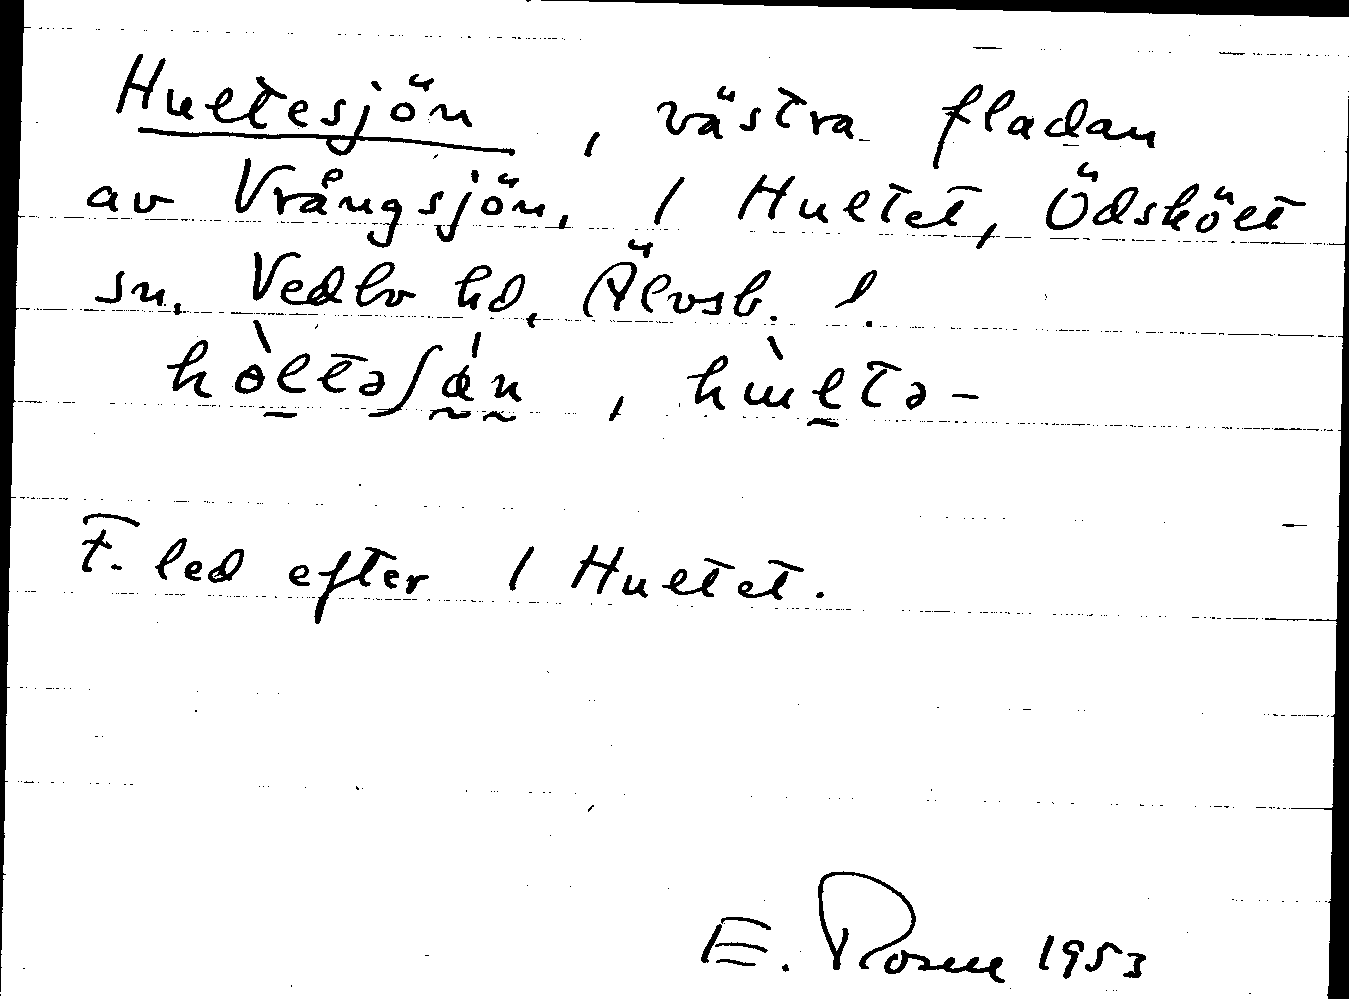 Hultesjön, västra fladan
av Vrångsjön, / Hultet, Ödskölt
sn, Vedbo hd, Älvsb. l.
hòltəʃǿn, hùltə-
F. led efter / Hultet.
E. Rosell 1953